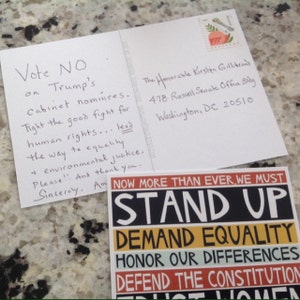 Vote NO
on Trump's
cabinet nominees.
Fight the good fight for
human rights... lead
the way to equality
& environmental justice.
Please! And thank you.
Sincerely,
The Honorable Kirsten Gillibrand
478 Russell Senate Office Bldg
Washington, DC 20510
NOW MORE THAN EVER WE MUST
STAND UP
DEMAND EQUALITY
HONOR OUR DIFFERENCES
DEFEND THE CONSTITUTION
TRUST WOMEN